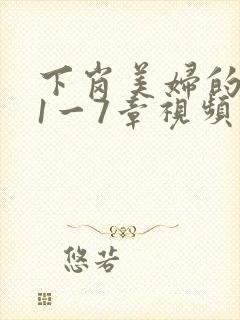 下岗美婦的
1一7章視頻
悠若